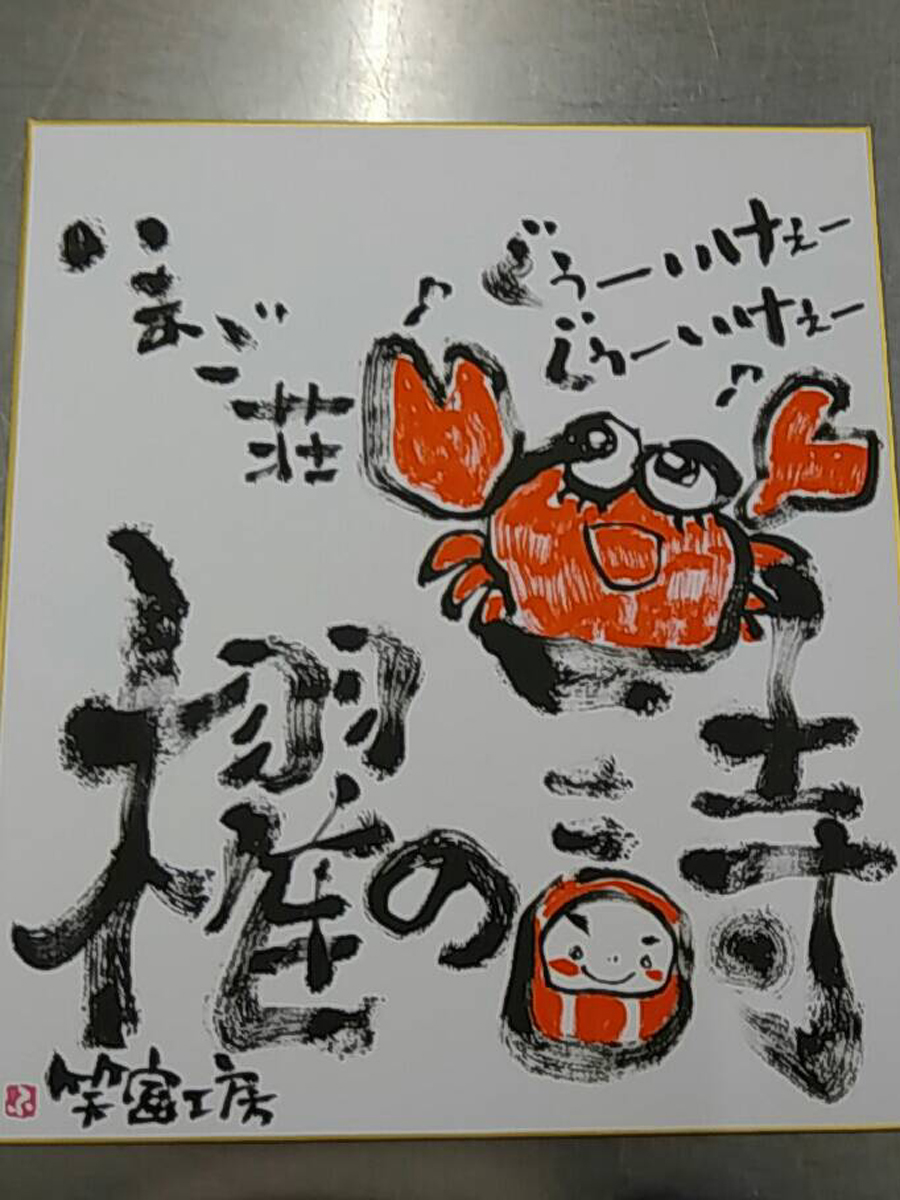 ぐぅーいけぇー
じぅーいけぇー
いまご荘
櫂の詩
笑宙工房